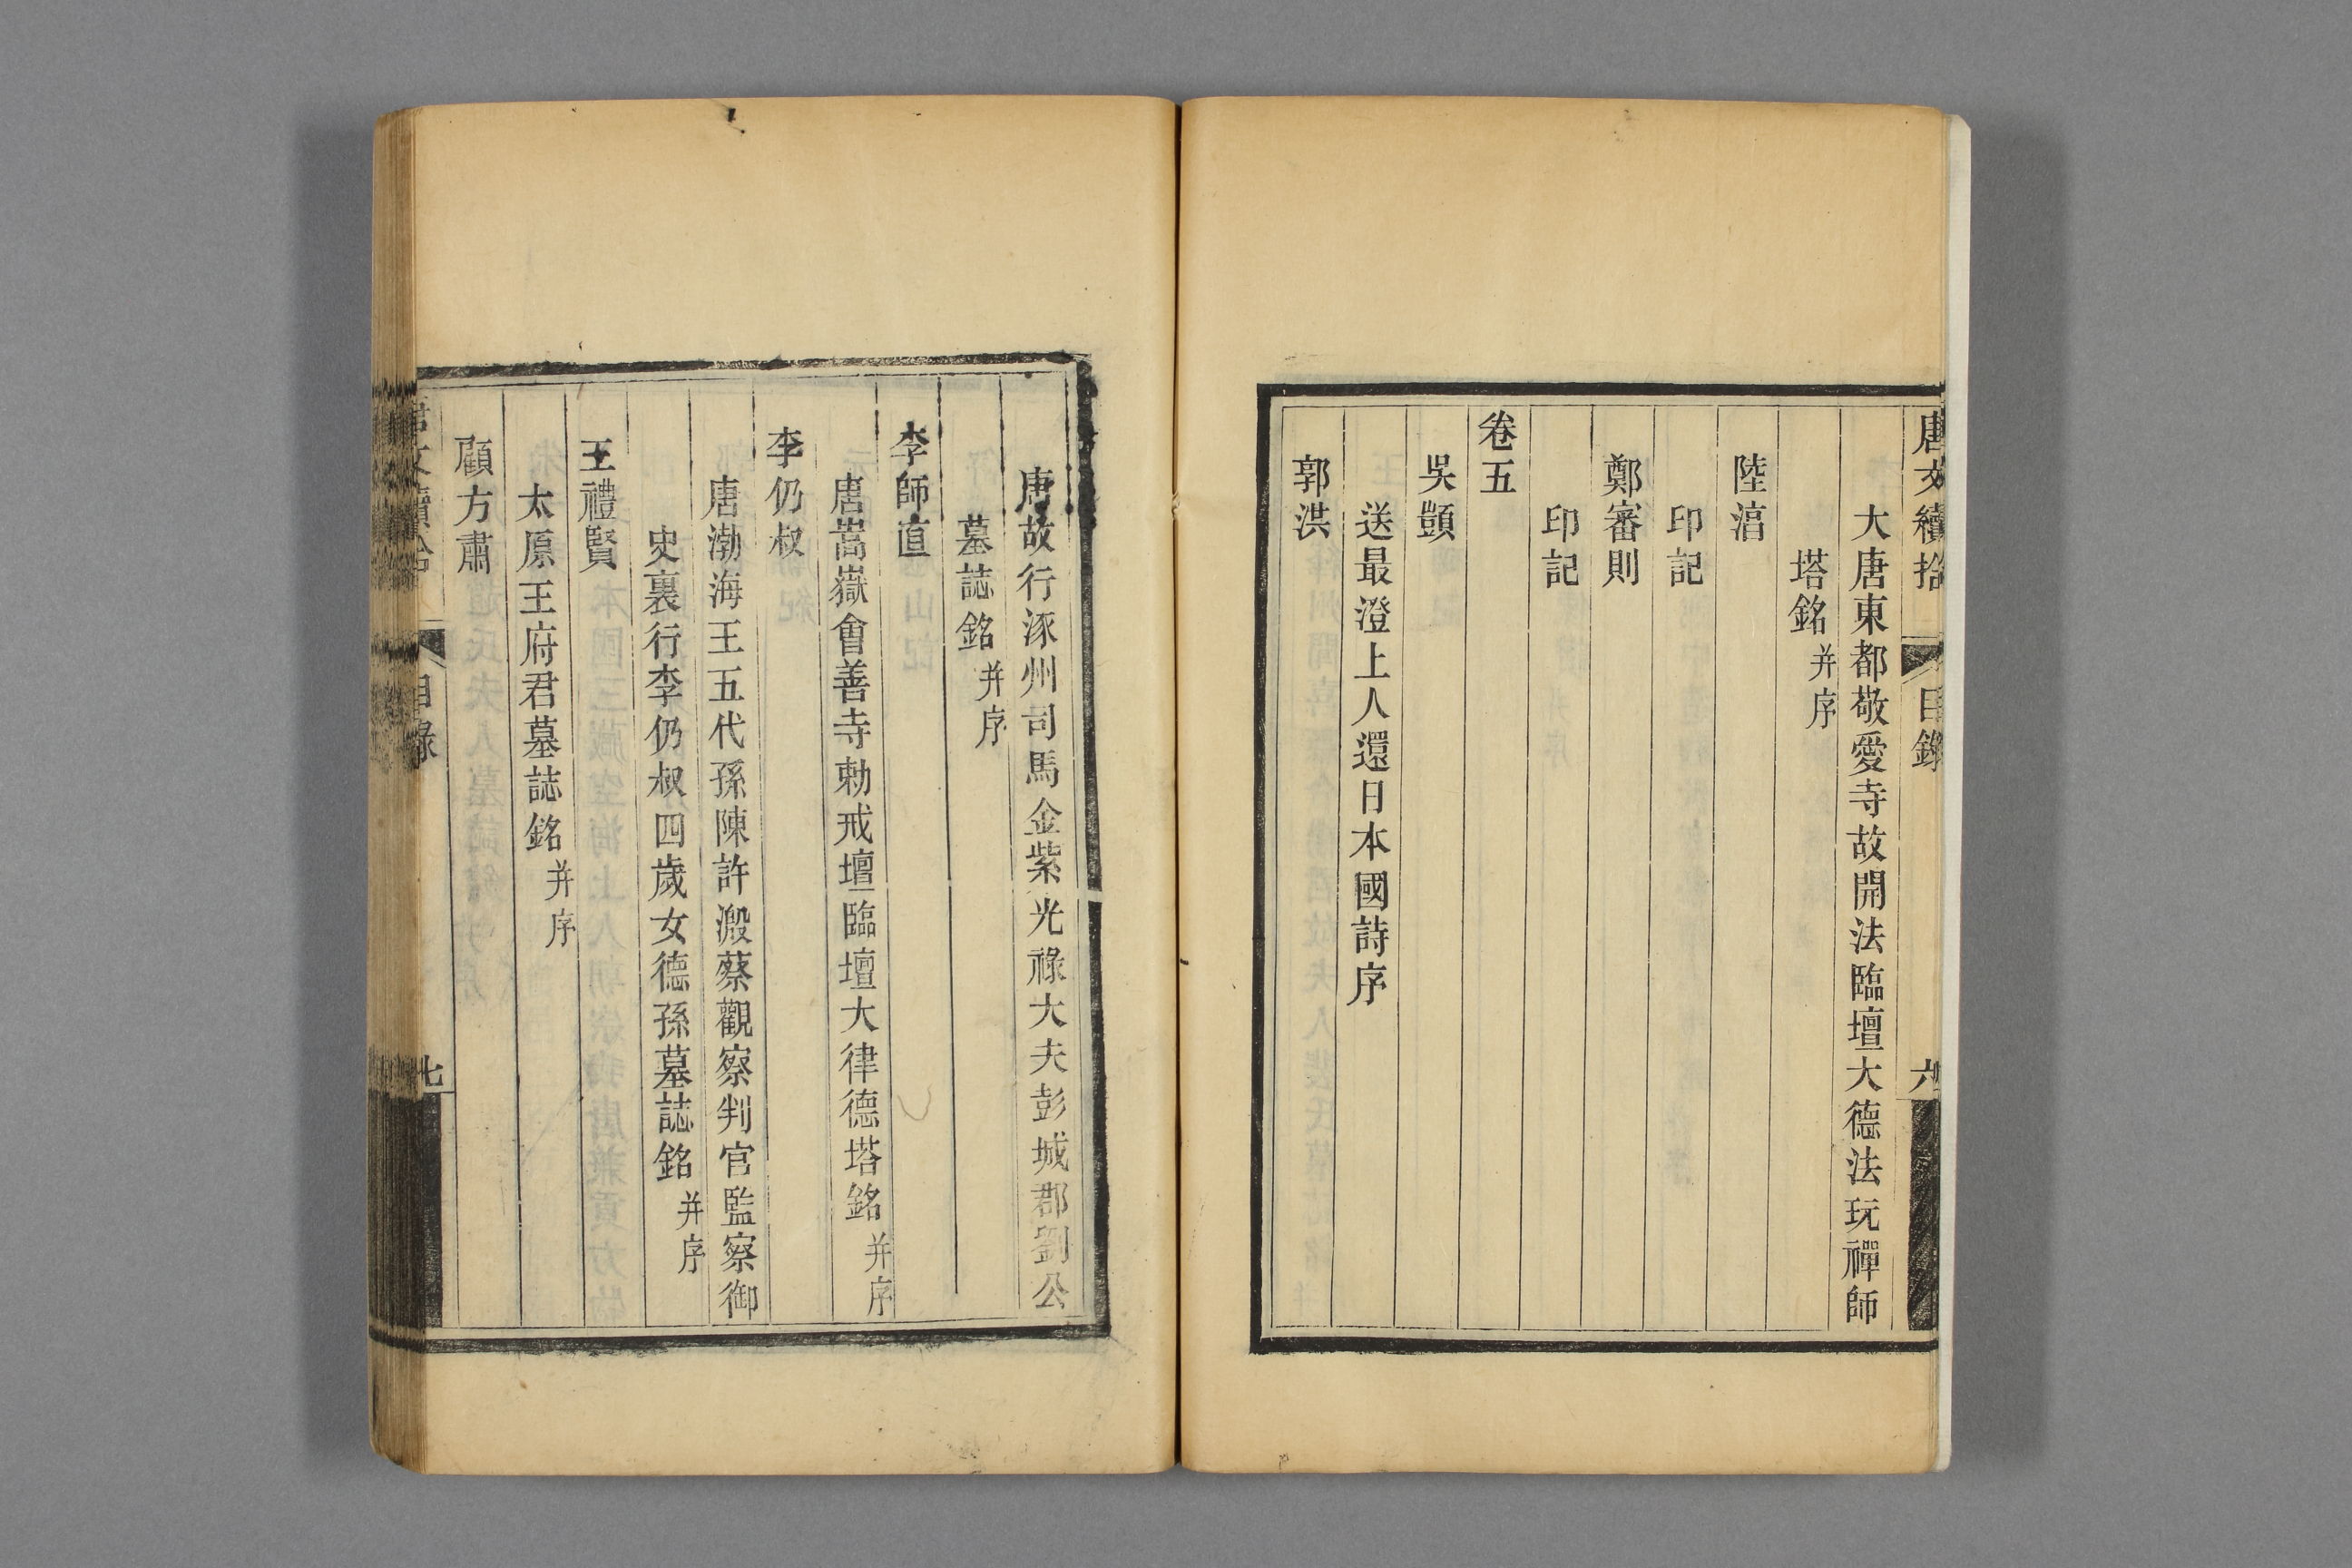 唐文續拾 目錄 六
大唐東都敬愛寺故開法臨壇大德法玩禪師
塔銘并序
陸淳
印記
鄭審則
印記
卷五
吳顗
送最澄上人還日本國詩序
郭洪
唐故行涿州司馬金紫光祿大夫彭城郡劉公
墓誌銘并序
李師直
唐嵩嶽會善寺勅戒壇臨壇大律德塔銘并序
李仍叔
唐渤海王五代孫陳許溵蔡觀察判官監察御
史裏行李仍叔四歲女德孫墓誌銘并序
王禮賢
太原王府君墓誌銘并序
顧方肅
唐文續拾 目錄 七